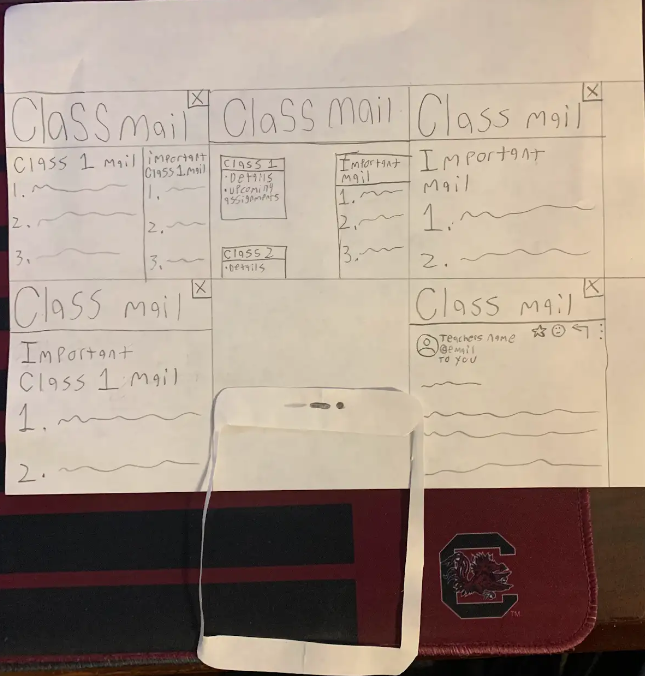 Class mail
X
Class 1 mail
1.
2.
3.
important
Class 1 mail
1.
2.
3.
Class mail
Class 1
• Details
• upcoming
assignments
Class 2
• Details
Important
mail
1.
2.
3.
Class mail
X
Important
mail
1.
2.
Class mail
X
Important
Class 1 mail
1.
2.
Class mail
X
Teachers name
@email
TO YOU
C
TM